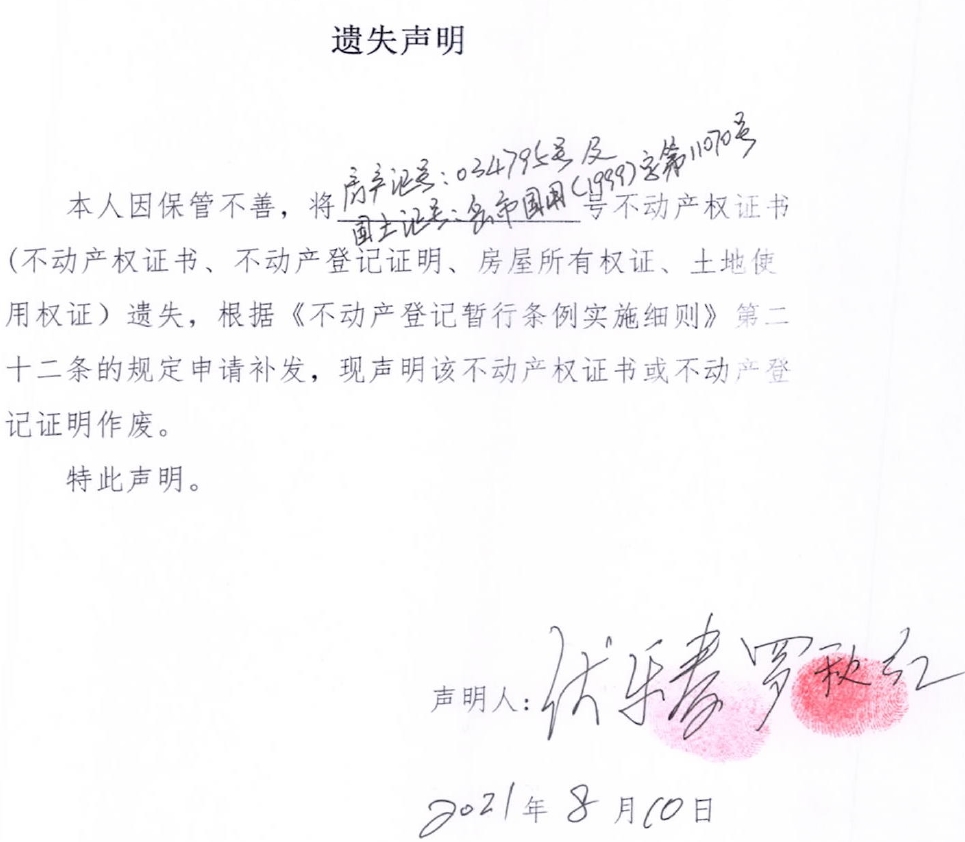 遗失声明
房产证号:034795号及
本人因保管不善,将国土证号:岳市国用(1999)字第11070号号不动产权证书
(不动产权证书、不动产登记证明、房屋所有权证、土地使
用权证)遗失,根据《不动产登记暂行条例实施细则》第二
十二条的规定申请补发,现声明该不动产权证书或不动产登
记证明作废。
特此声明。
声明人:伏乐春 罗秋红
2021年8月10日